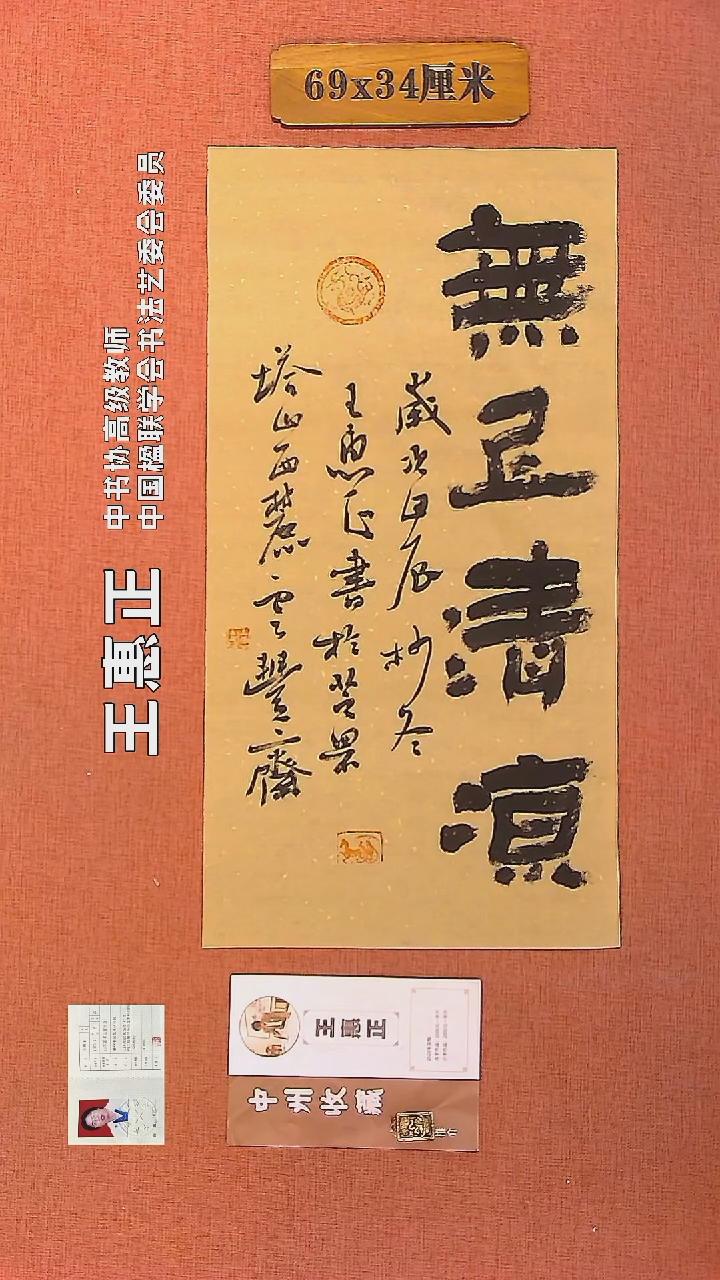 69x34厘米
無
清
凉
歲次甲辰杪冬
王惠正書於芝罘
塔山西麓雲豐齋
王惠正
中书协高级教师
中国楹联学会书法艺委会委员
王惠正
中州收藏